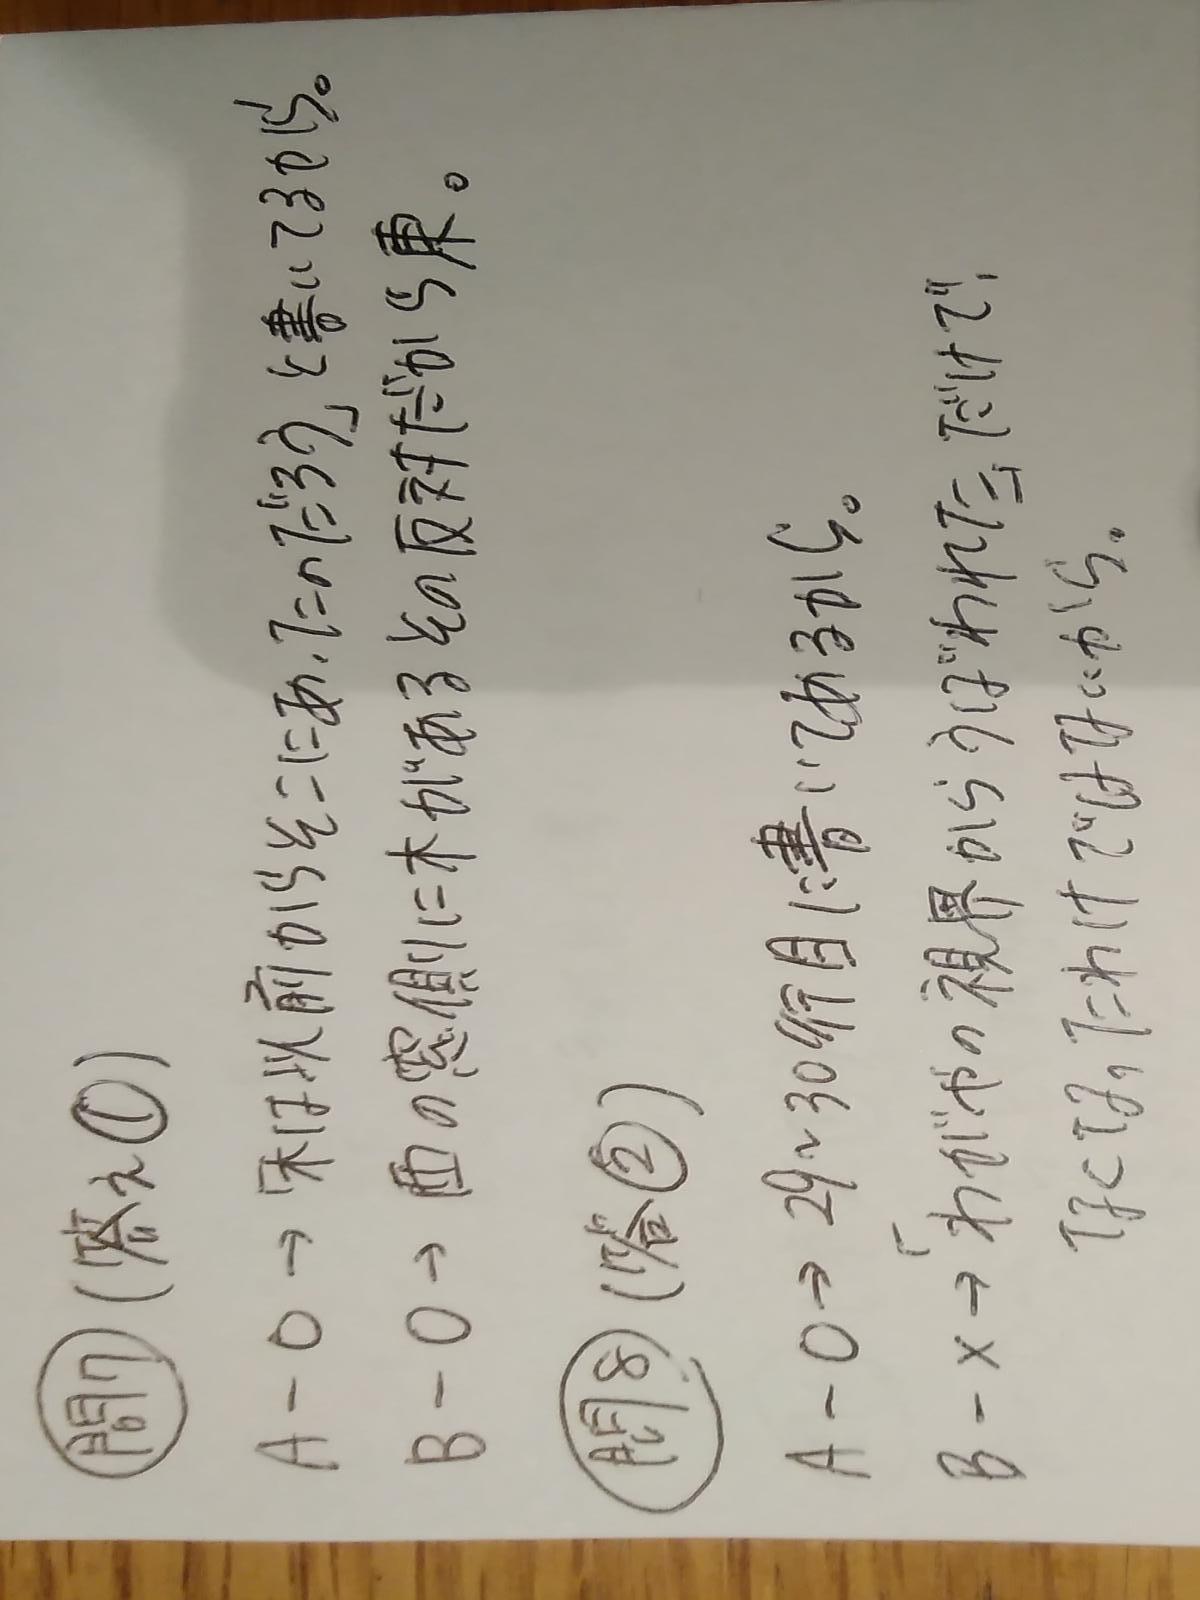 問7 (答え①)
A-○→床は以前からそこにあったのだろう」と書いてるから。
B-○→西の窓側に木があるその反対だから東。
問8 (答②)
A-○→29~30行目に書いてあるから。
B-×→「わがやの視界からうばわれた」だけで、
なくなったわけではないから。